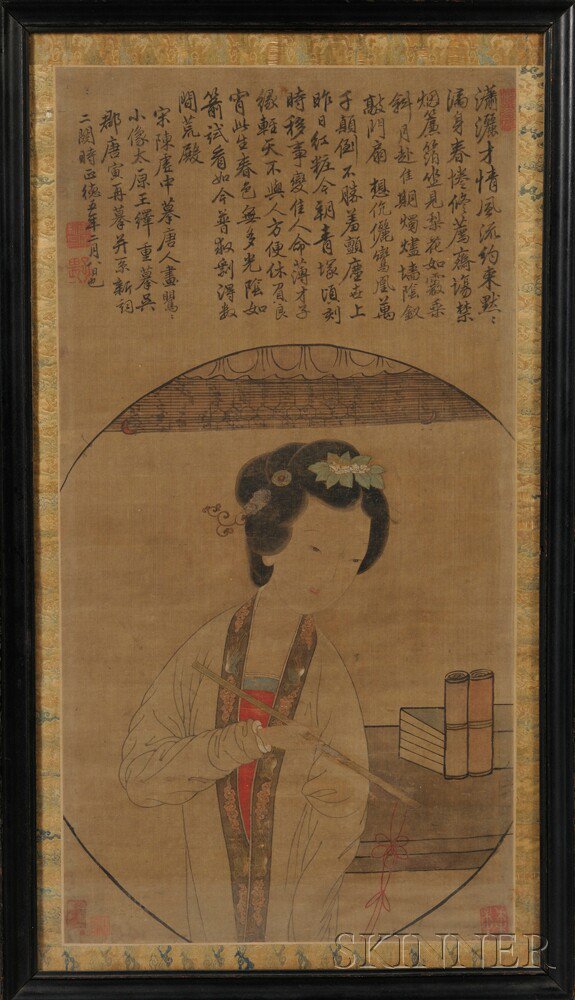 潇灑才情風流約束默〻
滿身春倦修薦齋場禁
烟簾箔坐見梨花如霰乘
斜月赴佳期燭燼墻陰釵
敲門扇 想伉儷鸞鳳萬
子顛倒不勝羞顫塵世上
昨日紅粧今朝青塚頃刻
時移事變佳人命薄才子
緣輕天不與人方便休負良
宵此生春色無多光陰如
箭試看如今普救剝淂數
間荒殿
宋陳虛中摹唐人畫鶯〻
小像太原王繹重摹吳
郡唐寅再摹并系新詞
二闋時正德五年二月八日也
SKINNER